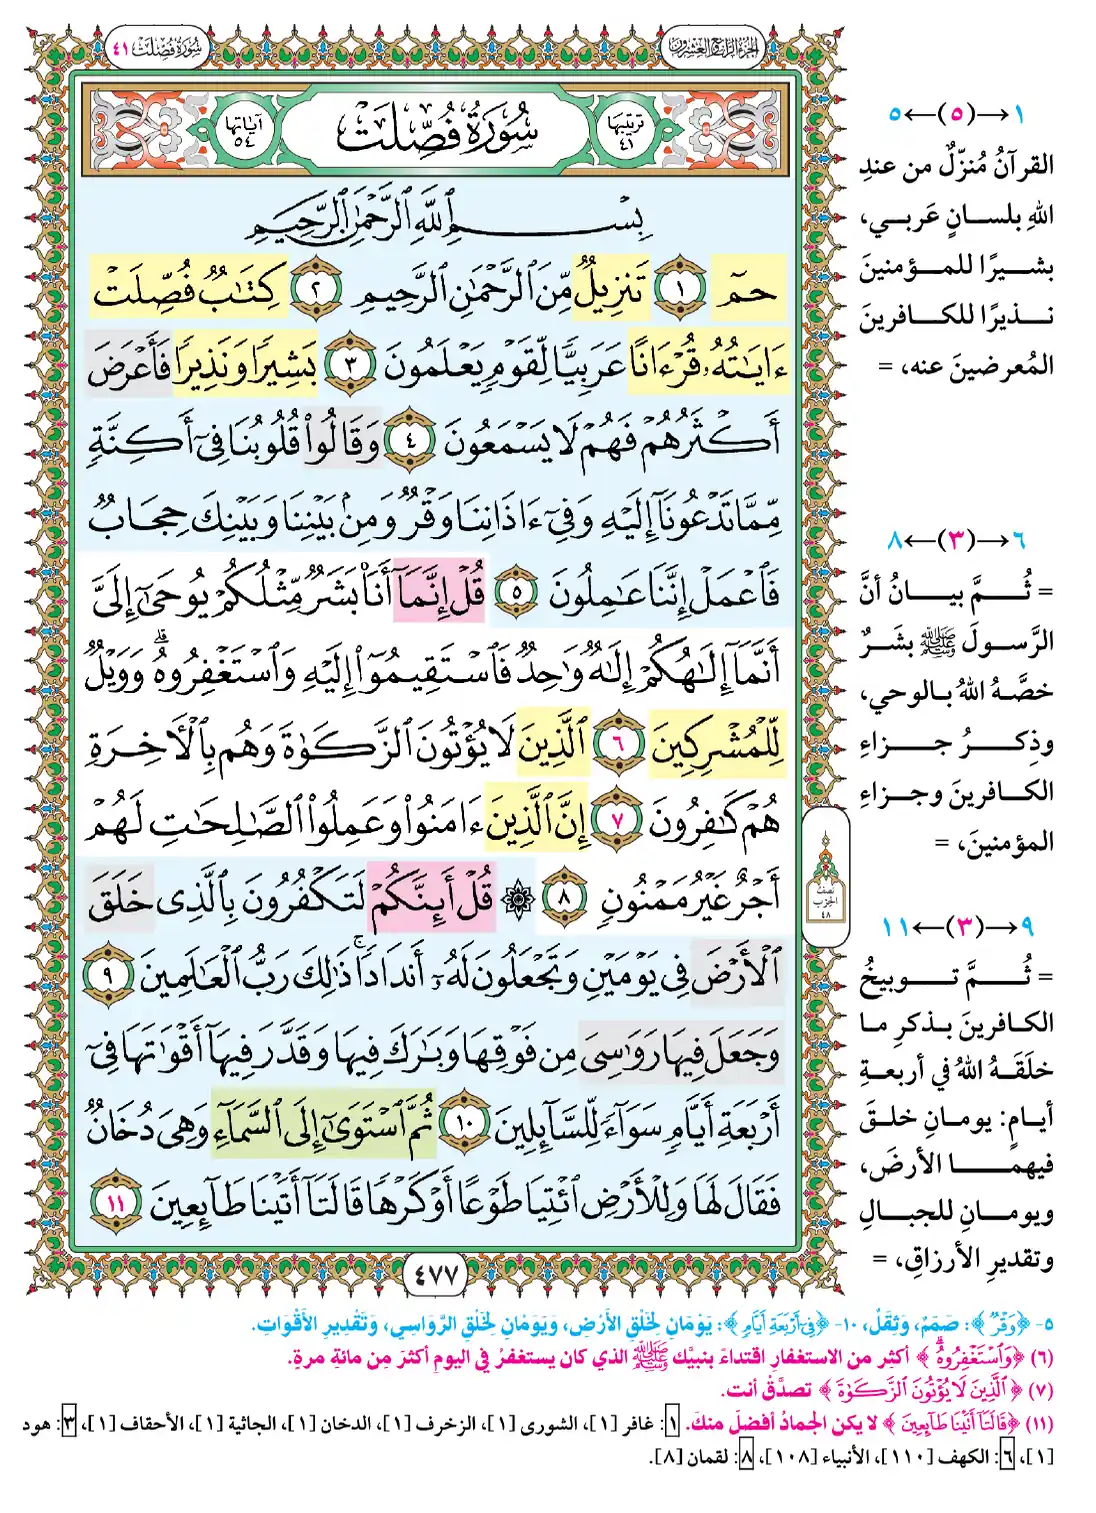 الجزء الرابع والعشرون
سورة فصلت ٤١
ترتيبها ٤١
سُورَةُ فُصِّلَتْ
آياتها ٥٤
بِسْمِ ٱللَّهِ ٱلرَّحْمَٰنِ ٱلرَّحِيمِ
حمٓ ١ تَنزِيلٌ مِّنَ ٱلرَّحْمَٰنِ ٱلرَّحِيمِ ٢ كِتَٰبٌ فُصِّلَتْ
ءَايَٰتُهُۥ قُرْءَانًا عَرَبِيًّا لِّقَوْمٍ يَعْلَمُونَ ٣ بَشِيرًا وَنَذِيرًا فَأَعْرَضَ
أَكْثَرُهُمْ فَهُمْ لَا يَسْمَعُونَ ٤ وَقَالُوا۟ قُلُوبُنَا فِىٓ أَكِنَّةٍ
مِّمَّا تَدْعُونَآ إِلَيْهِ وَفِىٓ ءَاذَانِنَا وَقْرٌ وَمِنۢ بَيْنِنَا وَبَيْنِكَ حِجَابٌ
فَٱعْمَلْ إِنَّنَا عَٰمِلُونَ ٥ قُلْ إِنَّمَآ أَنَا۠ بَشَرٌ مِّثْلُكُمْ يُوحَىٰٓ إِلَىَّ
أَنَّمَآ إِلَٰهُكُمْ إِلَٰهٌ وَٰحِدٌ فَٱسْتَقِيمُوٓا۟ إِلَيْهِ وَٱسْتَغْفِرُوهُ ۗ وَوَيْلٌ
لِّلْمُشْرِكِينَ ٦ ٱلَّذِينَ لَا يُؤْتُونَ ٱلزَّكَوٰةَ وَهُم بِٱلْءَاخِرَةِ
هُمْ كَٰفِرُونَ ٧ إِنَّ ٱلَّذِينَ ءَامَنُوا۟ وَعَمِلُوا۟ ٱلصَّٰلِحَٰتِ لَهُمْ
أَجْرٌ غَيْرُ مَمْنُونٍ ٨ ۞ قُلْ أَئِنَّكُمْ لَتَكْفُرُونَ بِٱلَّذِى خَلَقَ
ٱلْأَرْضَ فِى يَوْمَيْنِ وَتَجْعَلُونَ لَهُۥٓ أَندَادًا ۚ ذَٰلِكَ رَبُّ ٱلْعَٰلَمِينَ ٩
وَجَعَلَ فِيهَا رَوَٰسِىَ مِن فَوْقِهَا وَبَٰرَكَ فِيهَا وَقَدَّرَ فِيهَآ أَقْوَٰتَهَا فِىٓ
أَرْبَعَةِ أَيَّامٍ سَوَآءً لِّلسَّآئِلِينَ ١٠ ثُمَّ ٱسْتَوَىٰٓ إِلَى ٱلسَّمَآءِ وَهِىَ دُخَانٌ
فَقَالَ لَهَا وَلِلْأَرْضِ ٱئْتِيَا طَوْعًا أَوْ كَرْهًا قَالَتَآ أَتَيْنَا طَآئِعِينَ ١١
نصف
الحزب
٤٨
٤٧٧
١→(٥)←٥
القرآنُ مُنزّلٌ من عندِ
اللهِ بلسانٍ عَربي،
بشيرًا للمؤمنينَ
نذيرًا للكافرينَ
المُعرضينَ عنه، =
٦→(٣)←٨
= ثُمَّ بيانُ أنَّ
الرَّسولَ ﷺ بشَرٌ
خصَّهُ اللهُ بالوحي،
وذِكرُ جزاءِ
الكافرينَ وجزاءِ
المؤمنينَ، =
٩→(٣)←١١
= ثُمَّ توبيخُ
الكافرينَ بذكرِ ما
خلَقَهُ اللهُ في أربعةِ
أيامٍ: يومانِ خلقَ
فيهما الأرضَ،
ويومانِ للجبالِ
وتقديرِ الأرزاقِ، =
٥- ﴿وَقْرٌ﴾: صَمَمٌ، وَثِقَلٌ، ١٠- ﴿فِىٓ أَرْبَعَةِ أَيَّامٍ﴾: يَوْمَانِ لِخَلْقِ الأَرْضِ، وَيَوْمَانِ لِخَلْقِ الرَّوَاسِي، وَتَقْدِيرِ الأَقْوَاتِ.
(٦) ﴿وَٱسْتَغْفِرُوهُ ۗ﴾ أكثِر من الاستغفارِ اقتداءً بنبيِّك ﷺ الذي كان يستغفرُ في اليومِ أكثرَ مِن مائةِ مرةٍ.
(٧) ﴿ٱلَّذِينَ لَا يُؤْتُونَ ٱلزَّكَوٰةَ﴾ تصدَّقْ أنت.
(١١) ﴿قَالَتَآ أَتَيْنَا طَآئِعِينَ﴾ لا يكن الجمادُ أفضلَ منكَ. ١: غافر [١]، الشورى [١]، الزخرف [١]، الدخان [١]، الجاثية [١]، الأحقاف [١]، ٣: هود
[١]، ٦: الكهف [١١٠]، الأنبياء [١٠٨]، ٨: لقمان [٨].